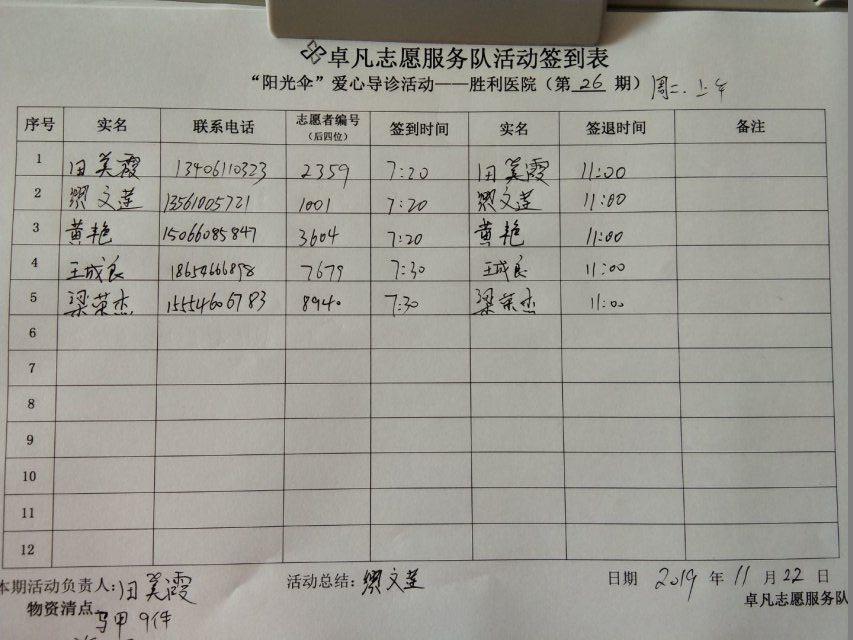 卓凡志愿服务队活动签到表
“阳光伞”爱心导诊活动——胜利医院（第 26 期） 周二.上午
序号 实名 联系电话 志愿者编号（后四位） 签到时间 实名 签退时间 备注
1 田美霞 13406110323 2359 7:20 田美霞 11:00
2 缪文莲 13561005721 1001 7:20 缪文莲 11:00
3 黄艳 15066085847 3604 7:20 黄艳 11:00
4 王成良 18654666898 7679 7:30 王成良 11:00
5 梁荣杰 15554606783 8940 7:30 梁荣杰 11:00
6
7
8
9
10
11
12
本期活动负责人:田美霞 活动总结:缪文莲 日期 2019 年 11 月 22 日
物资清点 马甲 9件 卓凡志愿服务队